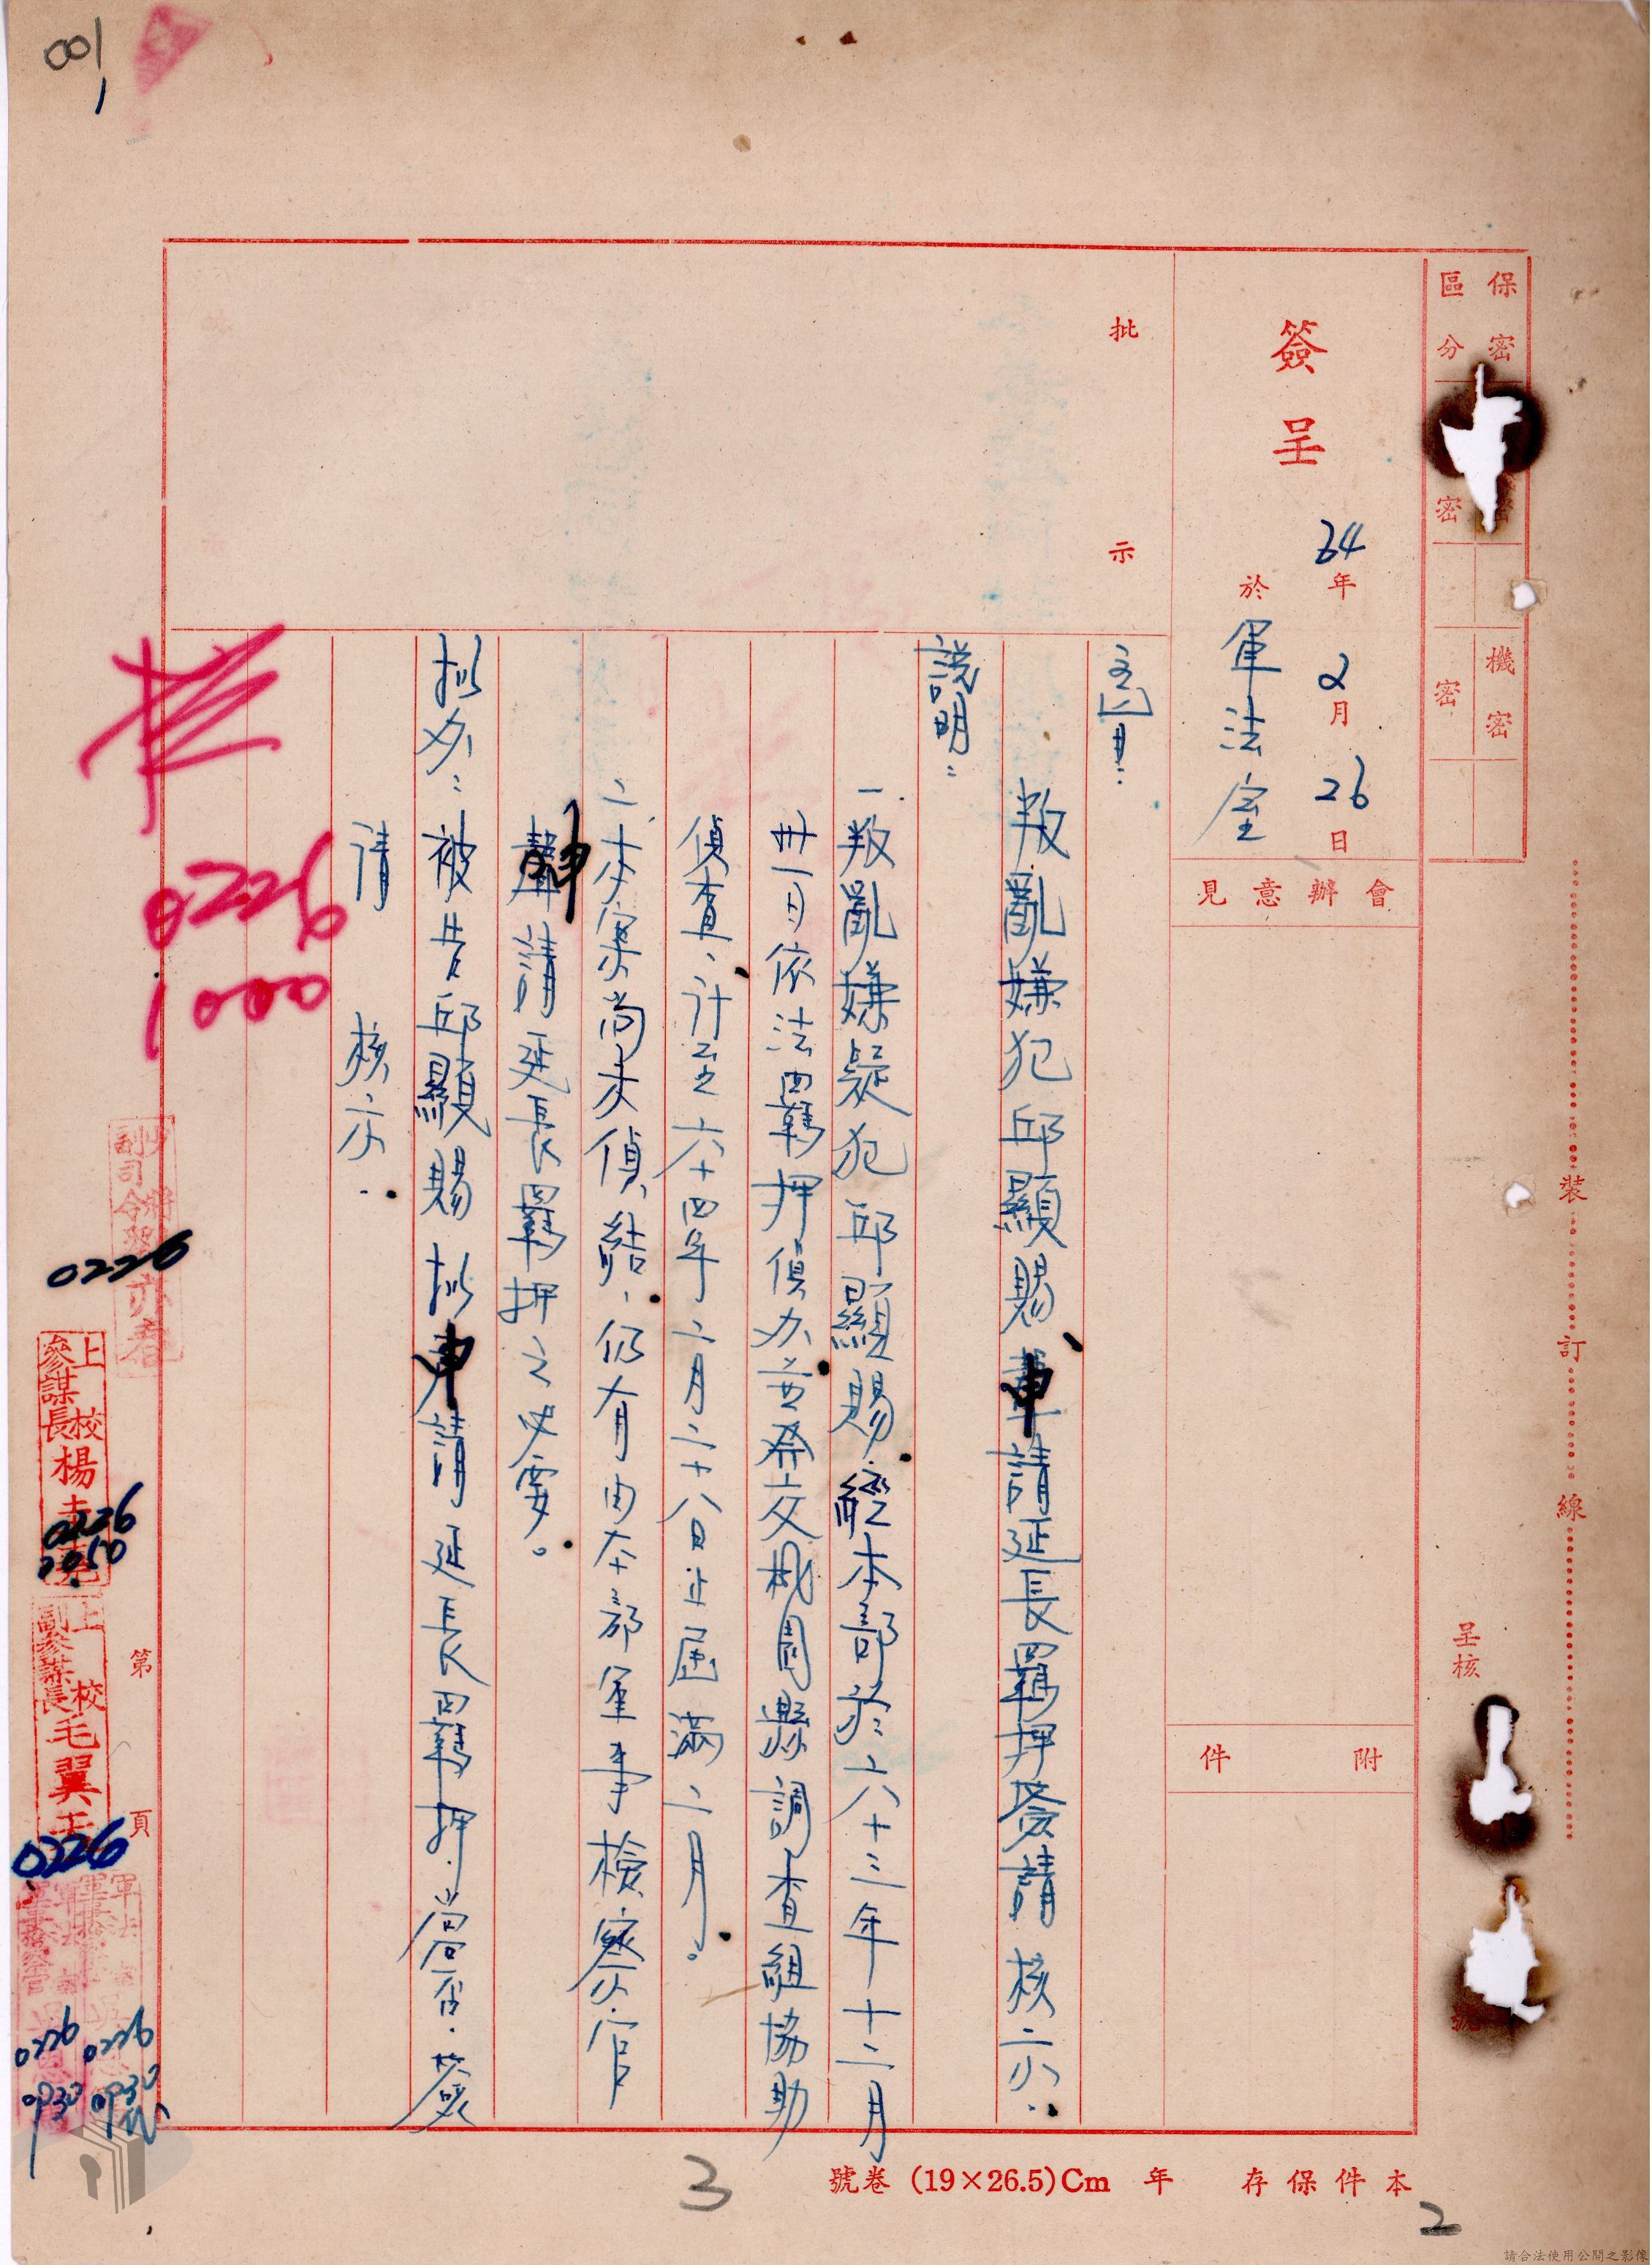 001
保密
區分
密
機密
密
簽呈
64年2月26日
於軍法室
會辦意見
附件
批示
主旨:
叛亂嫌犯邱顯賜申請延長羈押簽請 核示..
說明:
一叛亂嫌疑犯邱顯賜經本部於六十三年十二月
卅一日依法羈押偵办並發交桃園縣調查組協助
偵查、计至六十四年二月二十八日止屆滿二月。
二、本案尚未偵結、仍有由本部軍事檢察官
申請延長羈押之必要。
拟办:被告邱顯賜拟申請延長羈押.當否.簽
請 核示..
0226
1000
少將
副司令
0226
上校
參謀長楊
0226
上校
副參謀長毛翼
0226
第 頁
0226
0930
0226
0930
裝
訂
線
呈核
號
本件保存 年 (19×26.5)Cm 卷號
3
2
請合法使用公開之影像